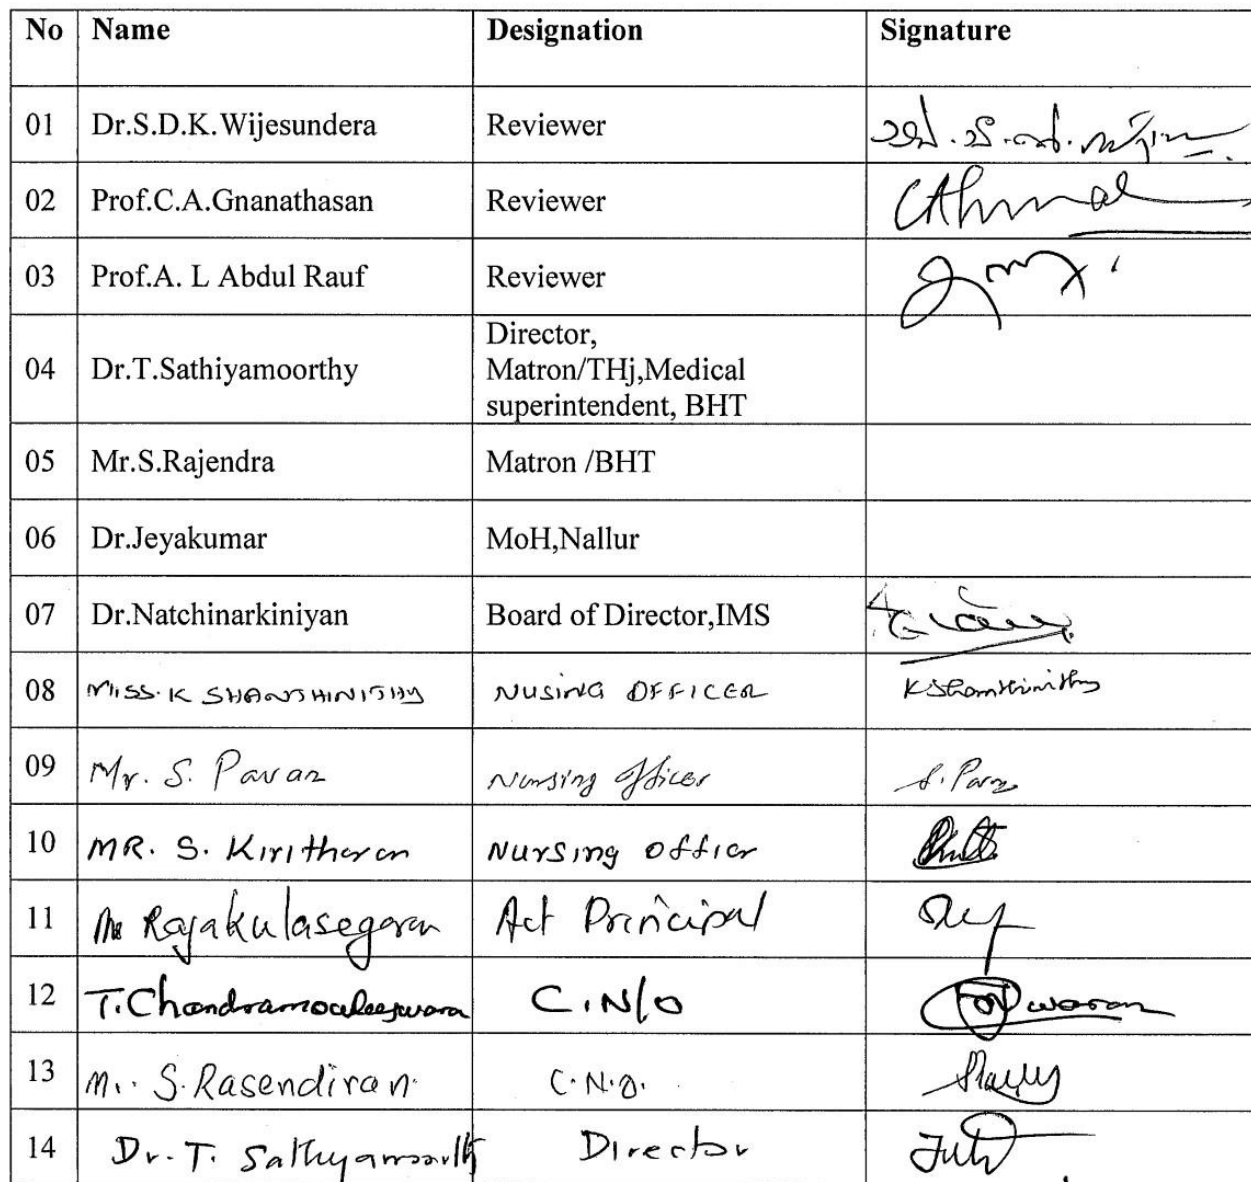 No Name Designation Signature
01 Dr.S.D.K.Wijesundera Reviewer
02 Prof.C.A.Gnanathasan Reviewer
03 Prof.A. L Abdul Rauf Reviewer
04 Dr.T.Sathiyamoorthy Director,
Matron/THj,Medical
superintendent, BHT
05 Mr.S.Rajendra Matron /BHT
06 Dr.Jeyakumar MoH,Nallur
07 Dr.Natchinarkiniyan Board of Director,IMS
08 MISS. K SHANTHINITHY NUSING OFFICER K.Shanthinithy
09 Mr. S. Pavan Nursing Officer S. Pavan
10 MR. S. Kiritharan Nursing Officr
11 Mr Rajakulasegaran Act Principal
12 T. Chandramouleeswara C.N/O
13 Mr. S. Rasendiran C.N.O.
14 Dr. T. Sathyamoorthy Director